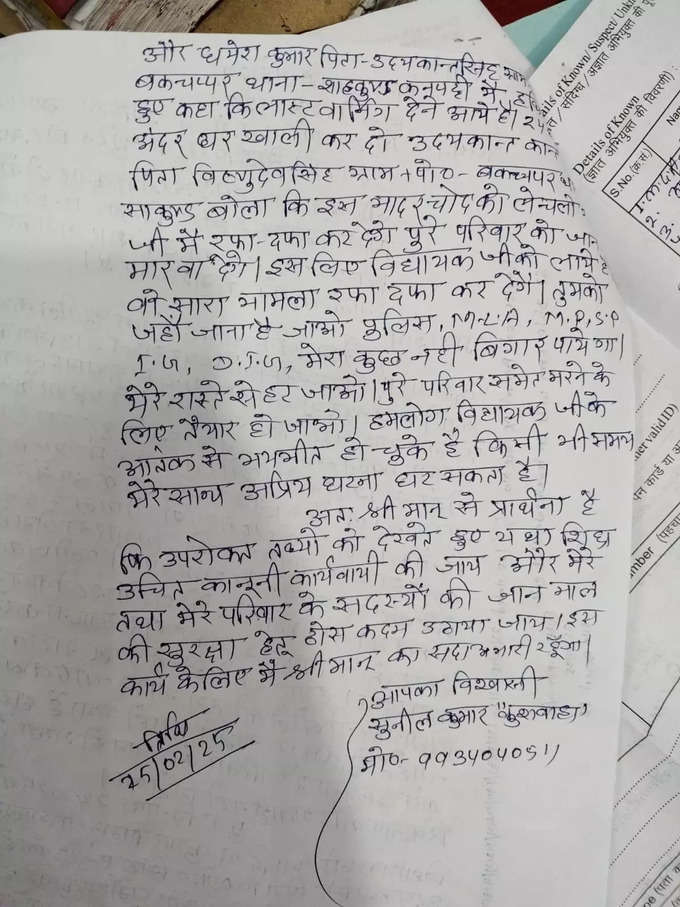 और धमेश कुमार पिता-उदयकान्तसिंह ग्राम
बकचप्पर थाना-शाहकुण्ड कनपट्टी में
हुए कहा कि लास्ट वार्मिंग देने आये है। 24
अंदर घर खाली कर दो उदयकान्त
पिता विष्णुदेव सिंह ग्राम+पो०-बकचप्पर
साकुण्ड बोला कि इस मादरचोद को लेन्चलो
जी मैं रफा-दफा कर देंगे पुरे परिवार को जान
मारवा देंगे। इस लिए विद्यायक जी को लाये है
वो सारा मामला रफा दफा कर देंगे। तुमको
जहाँ जाना है जाओ पुलिस, M-L-A, M.P, S.P
I.G, D.I.G, मेरा कुछ नही बिगार पायेगा।
मेरे रास्ते से हट जाओ। पुरे परिवार समेत मरने के
लिए तैयार हो जाओ। हमलोग विद्यायक जी के
आतंक से भयभीत हो चुके है किसी भी समय
मेरे साथ अप्रिय घटना घट सकता है।
अतः श्रीमान् से प्रार्थना है
कि उपरोक्त तथ्यो को देखते हुए यथा शिघ्र
उचित कानूनी कार्यवायी की जाय और मेरे
तथा मेरे परिवार के सदस्यों की जान माल
की सुरक्षा हेतू ठोस कदम उठाया जाय। इस
कार्य के लिए मैं श्रीमान् का सदा अभारी रहूँगा।
आपका विश्वासी
सुनील कुमार "कुशवाहा"
मो०-9934040511
तिथि
25/02/25
Details of Known/ Suspect/ Unk
त / संदिग्ध / अज्ञात अभियुक्त की पू
Details of Known
(ज्ञात अभियुक्त की विवरणी) :
S.No. (क्र.सं.)
Nam
1.
2.
er valid ID)
पन कार्ड या अ
umber (पहचा